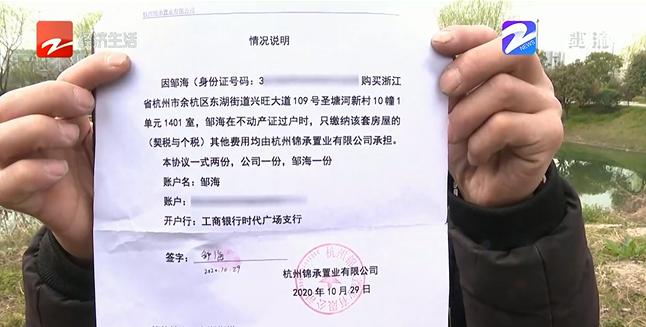 杭州锦承置业有限公司
经济生活
NEWS
情况说明
因邹海（身份证号码：3 购买浙江
省杭州市余杭区东湖街道兴旺大道109号圣塘河新村10幢1
单元1401室，邹海在不动产证过户时，只缴纳该套房屋的
(契税与个税）其他费用均由杭州锦承置业有限公司承担。
本协议一式两份，公司一份，邹海一份
账户名：邹海
账户：
开户行：工商银行时代广场支行
签字：邹海
2020.10.29
杭州锦承置业有限公司
2020年10月29日